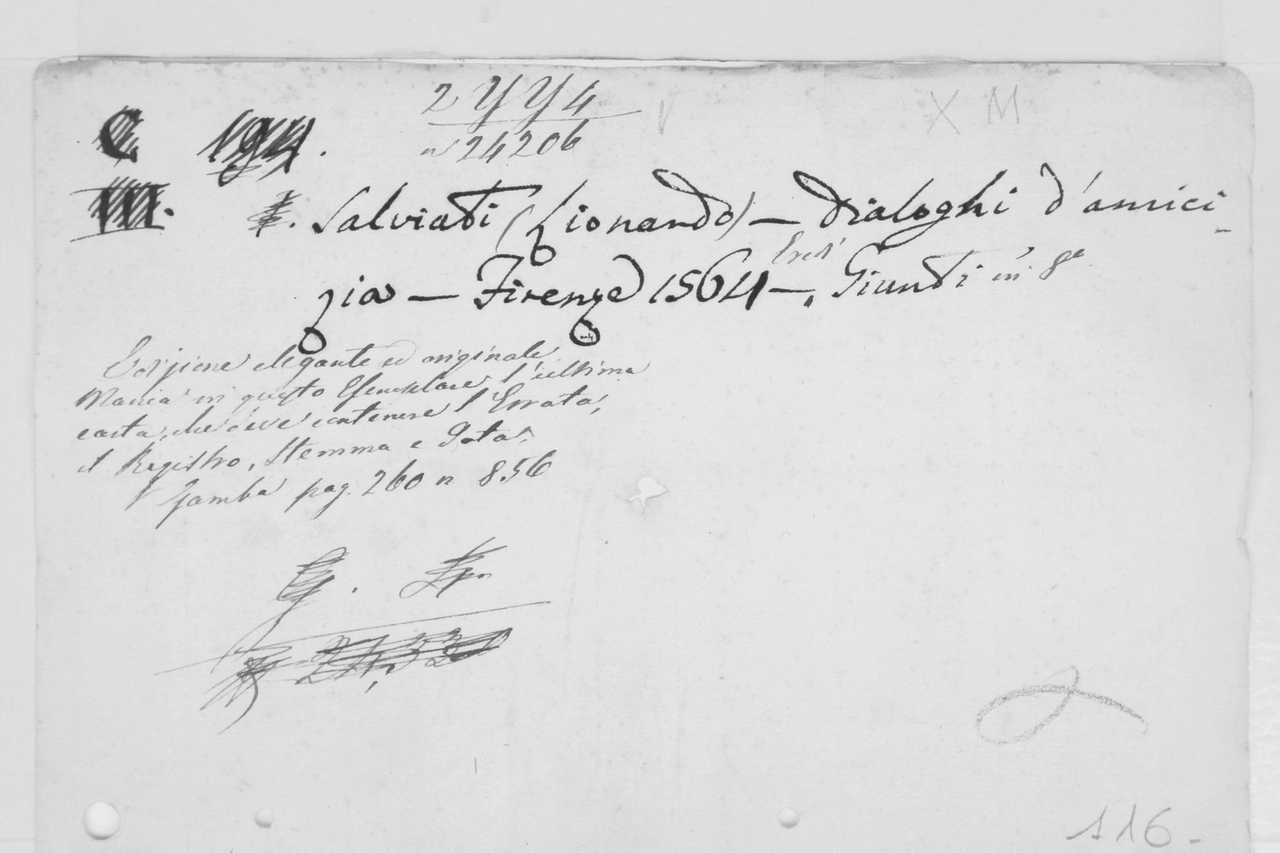 2 Y Y 4
n 24206
X M
Salviati (Lionardo) — Dialoghi d'amici-
zia — Firenze 1564 — Eredi Giunti in 8°
Edizione elegante ed originale
Manca in questo Esemplare l'ultima
carta, che deve contenere l'Errata,
il Registro, Stemma e Data.
Gamba pag. 260 n 856
116-